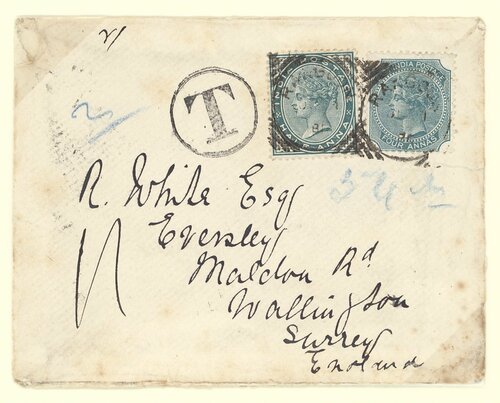 2/
T
INDIA POSTAGE
HALF ANNA
INDIA POSTAGE
FOUR ANNAS
RANGOON
RANGOON
R. White Esq
Eversley
Maldon Rd
Wallington
Surrey
England